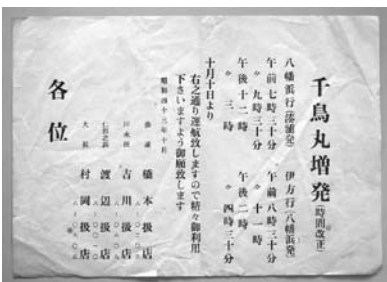 千鳥丸増発(時間改正)
八幡浜行(湊浦発) 伊方行(八幡浜発)
午前七時三十分 午前八時三十分
〃 九時三十分 〃 十一時
午後十二時 午後二時
〃 三時 〃 四時三十分
十月十日より
右之通り運航致しますので精々御利用
下さいますよう御願致します
昭和四十三年十月
湊浦 橋本扱店
川永田 吉川扱店
仁田之浜 渡辺扱店
大浜 村岡扱店
各位